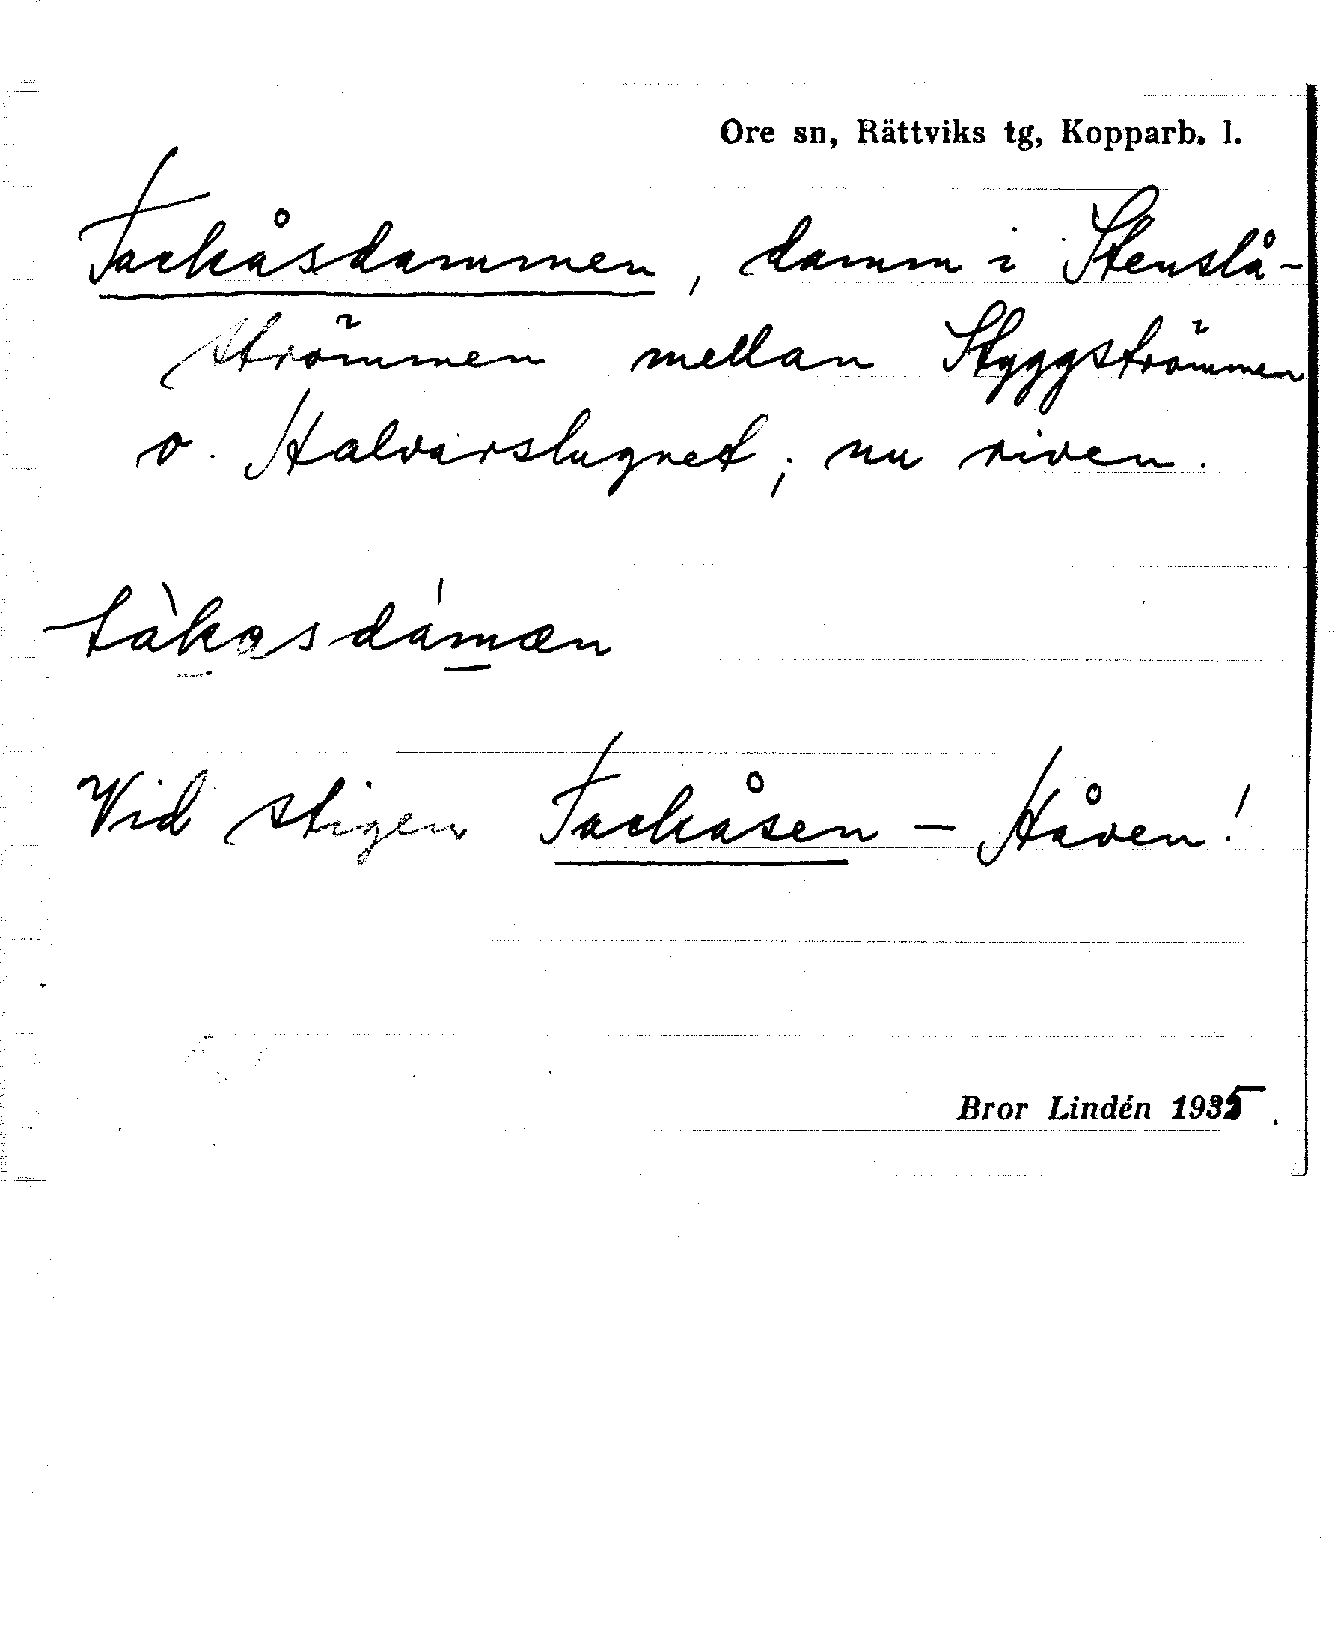 Ore sn, Rättviks tg, Kopparb. l.
Tackåsdammen, damm i Stenslå-
strömmen mellan Styggströmmen
o. Halvarslugnet; nu riven.
tàkɷsdámæn
Vid stigen Tackåsen – Håven!
Bror Lindén 1935.